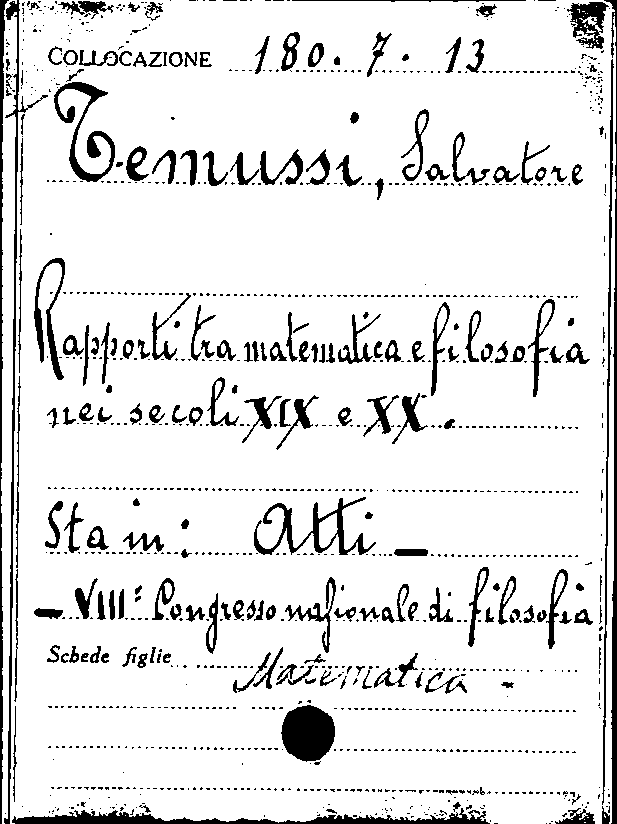 COLLOCAZIONE 180. 7. 13
Temussi, Salvatore
Rapporti tra matematica e filosofia
nei secoli XIX e XX.
Sta in: Atti —
— VIII° Congresso nazionale di filosofia
Schede figlie Matematica -